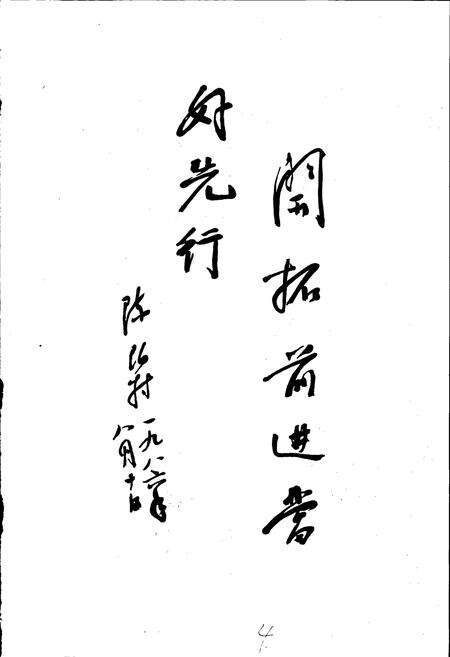 開拓前進當
好先行
陈伯村
一九八六年
八月十日
4